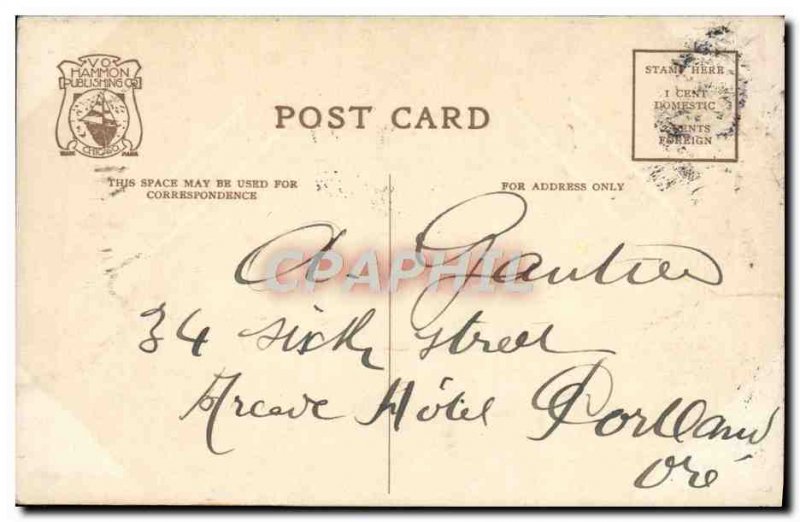 V.O.
HAMMON
PUBLISHING CO.
TRADE CHICAGO MARK
POST CARD
STAMP HERE
1 CENT
DOMESTIC
2 CENTS
FOREIGN
THIS SPACE MAY BE USED FOR
CORRESPONDENCE
FOR ADDRESS ONLY
CPAPHIL
A. Gautier
34 sixth street
Arcade Hôtel Portland
Oré